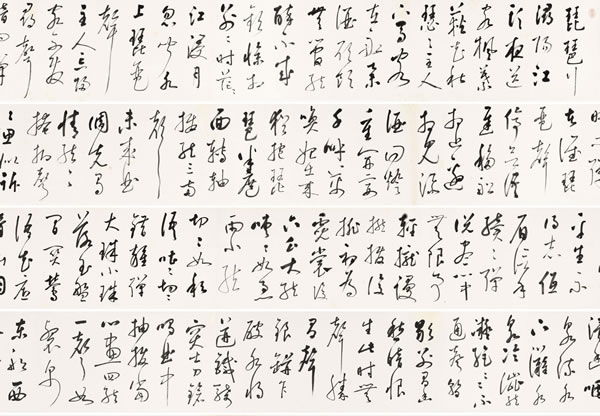 琵琶行
潯陽江
頭夜送
客楓葉
荻花秋
瑟〻主人
下馬客
在船舉
酒欲飲
無管絃
醉不成
歡慘將
別時茫
江浸月
忽聞水
上琵琶
聲
主人忘歸
客不發
尋聲
者誰琵
琶聲
停欲語
遲移船
相近邀
相見添
酒回燈
重開宴
千呼萬
喚始出來
猶抱琵
琶半遮
面轉軸
撥絃三兩
聲
未成曲
調先有
情絃〻
掩抑聲
〻思似訴
平生不
得志低
眉信手
續〻彈
說盡心中
無限事
輕攏慢
撚撥復
挑初為
霓裳後
六幺大絃
嘈〻如急
雨小絃
切〻如私
語嘈〻切〻
錯雜彈
大珠小珠
落玉盤
間關鶯
語花底
泉流冰
下灘水
泉冷澀絃
凝絕〻不
通聲暫
歇別有幽
愁暗恨
生此時無
聲勝
有聲
銀瓶乍
破水漿
迸鐵騎
突出刀鎗
鳴曲中
抽撥當
心畫四絃
一聲如
裂帛
東船西